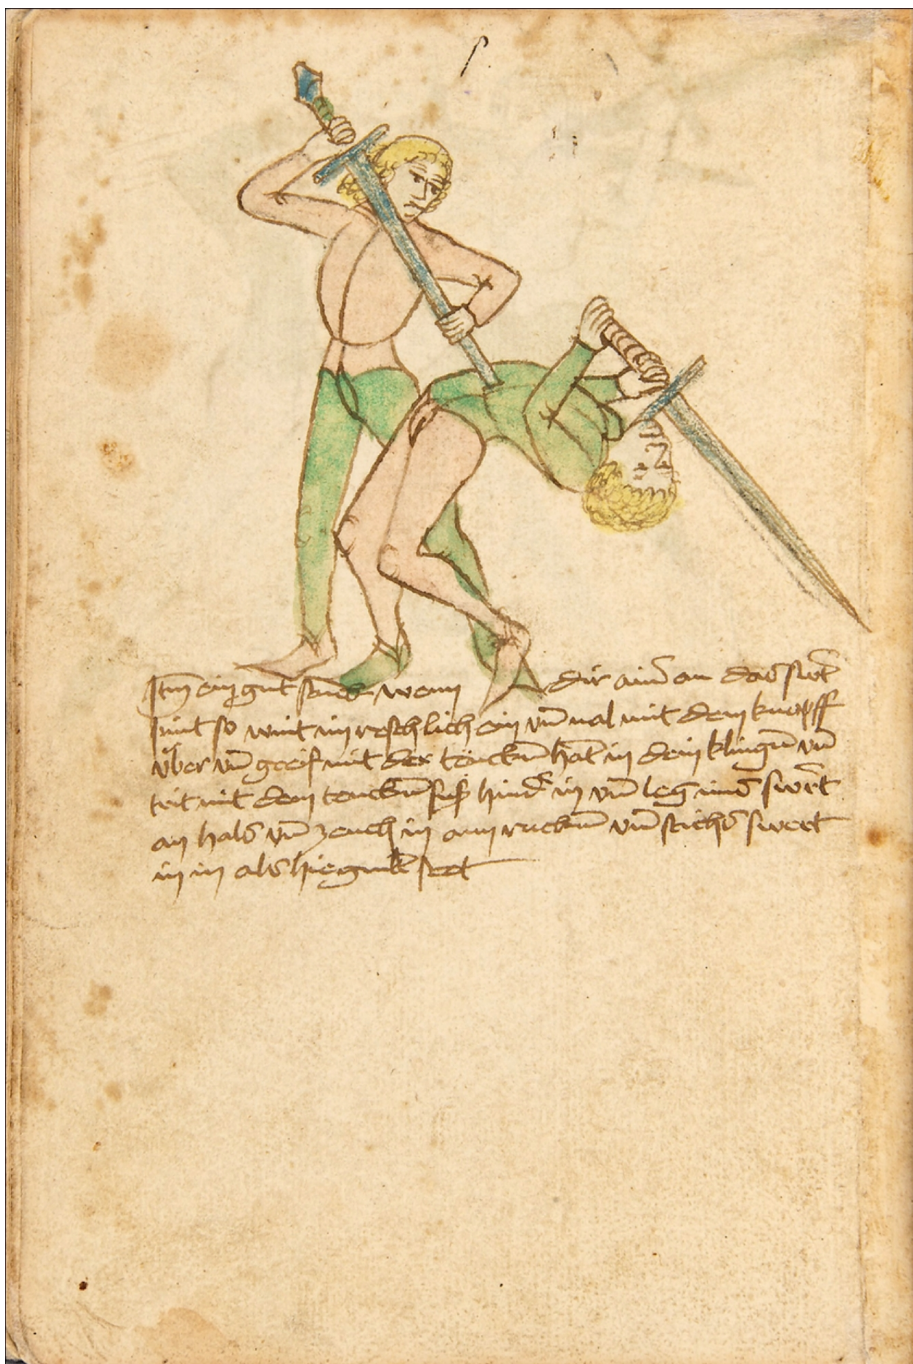 Itm ein gut stuck wenn dir ain an das swt
pint so wint im reschlich ein vn̄ val mit dem knopff
v̈ber vn̄ greif mit der tencken hāt in dein klingen vn̄
trit mit dem tencken fuſs hind in vn̄ leg im d swert
an hals vn̄ zeuch in ann rucken vn̄ stich d swert
in in als hie gmlt stet